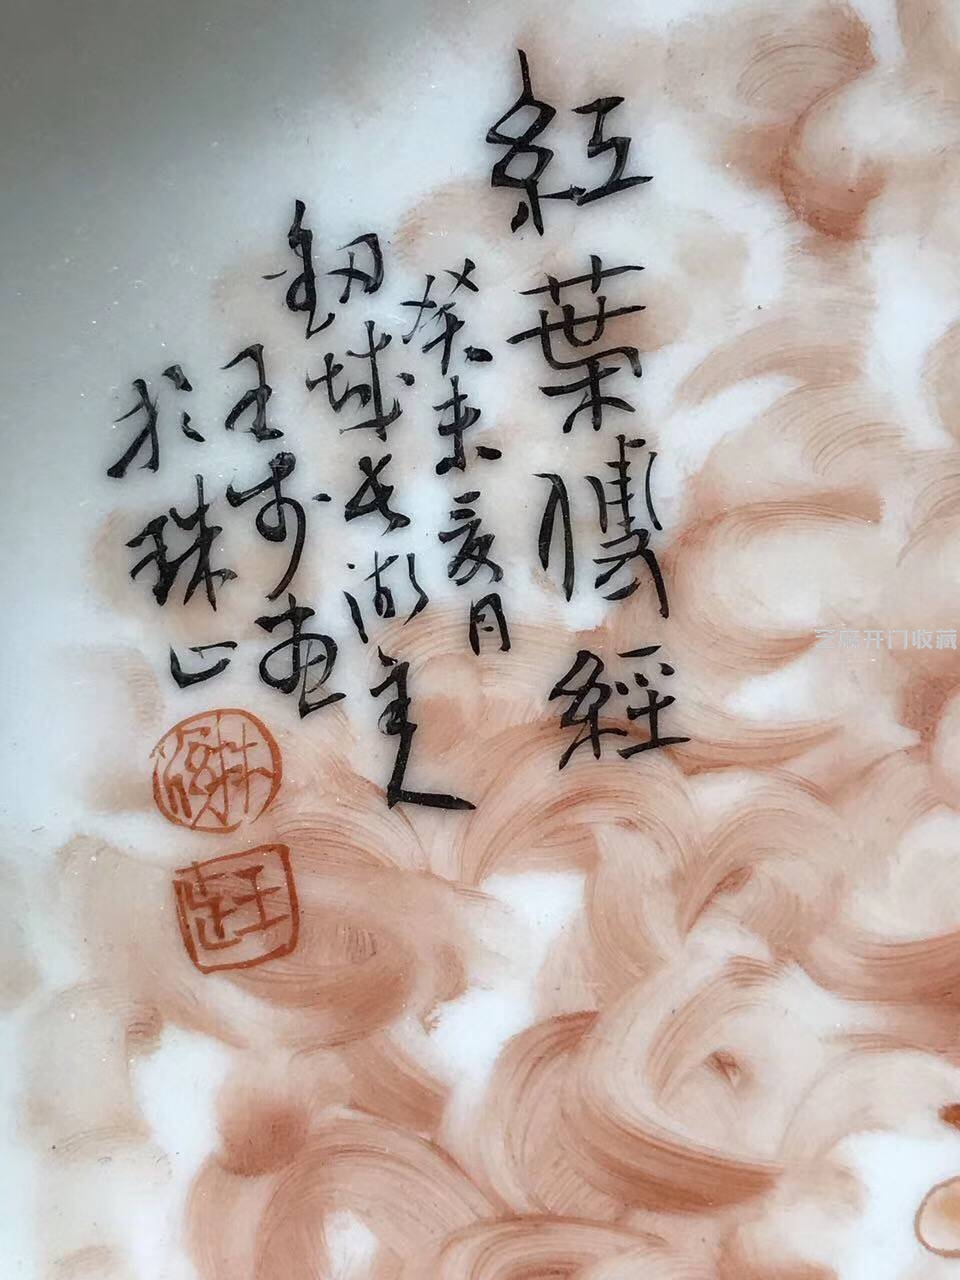 紅葉傳經
癸未夏月
釼城長湖主人
王步畫
於珠山
王
开门收藏